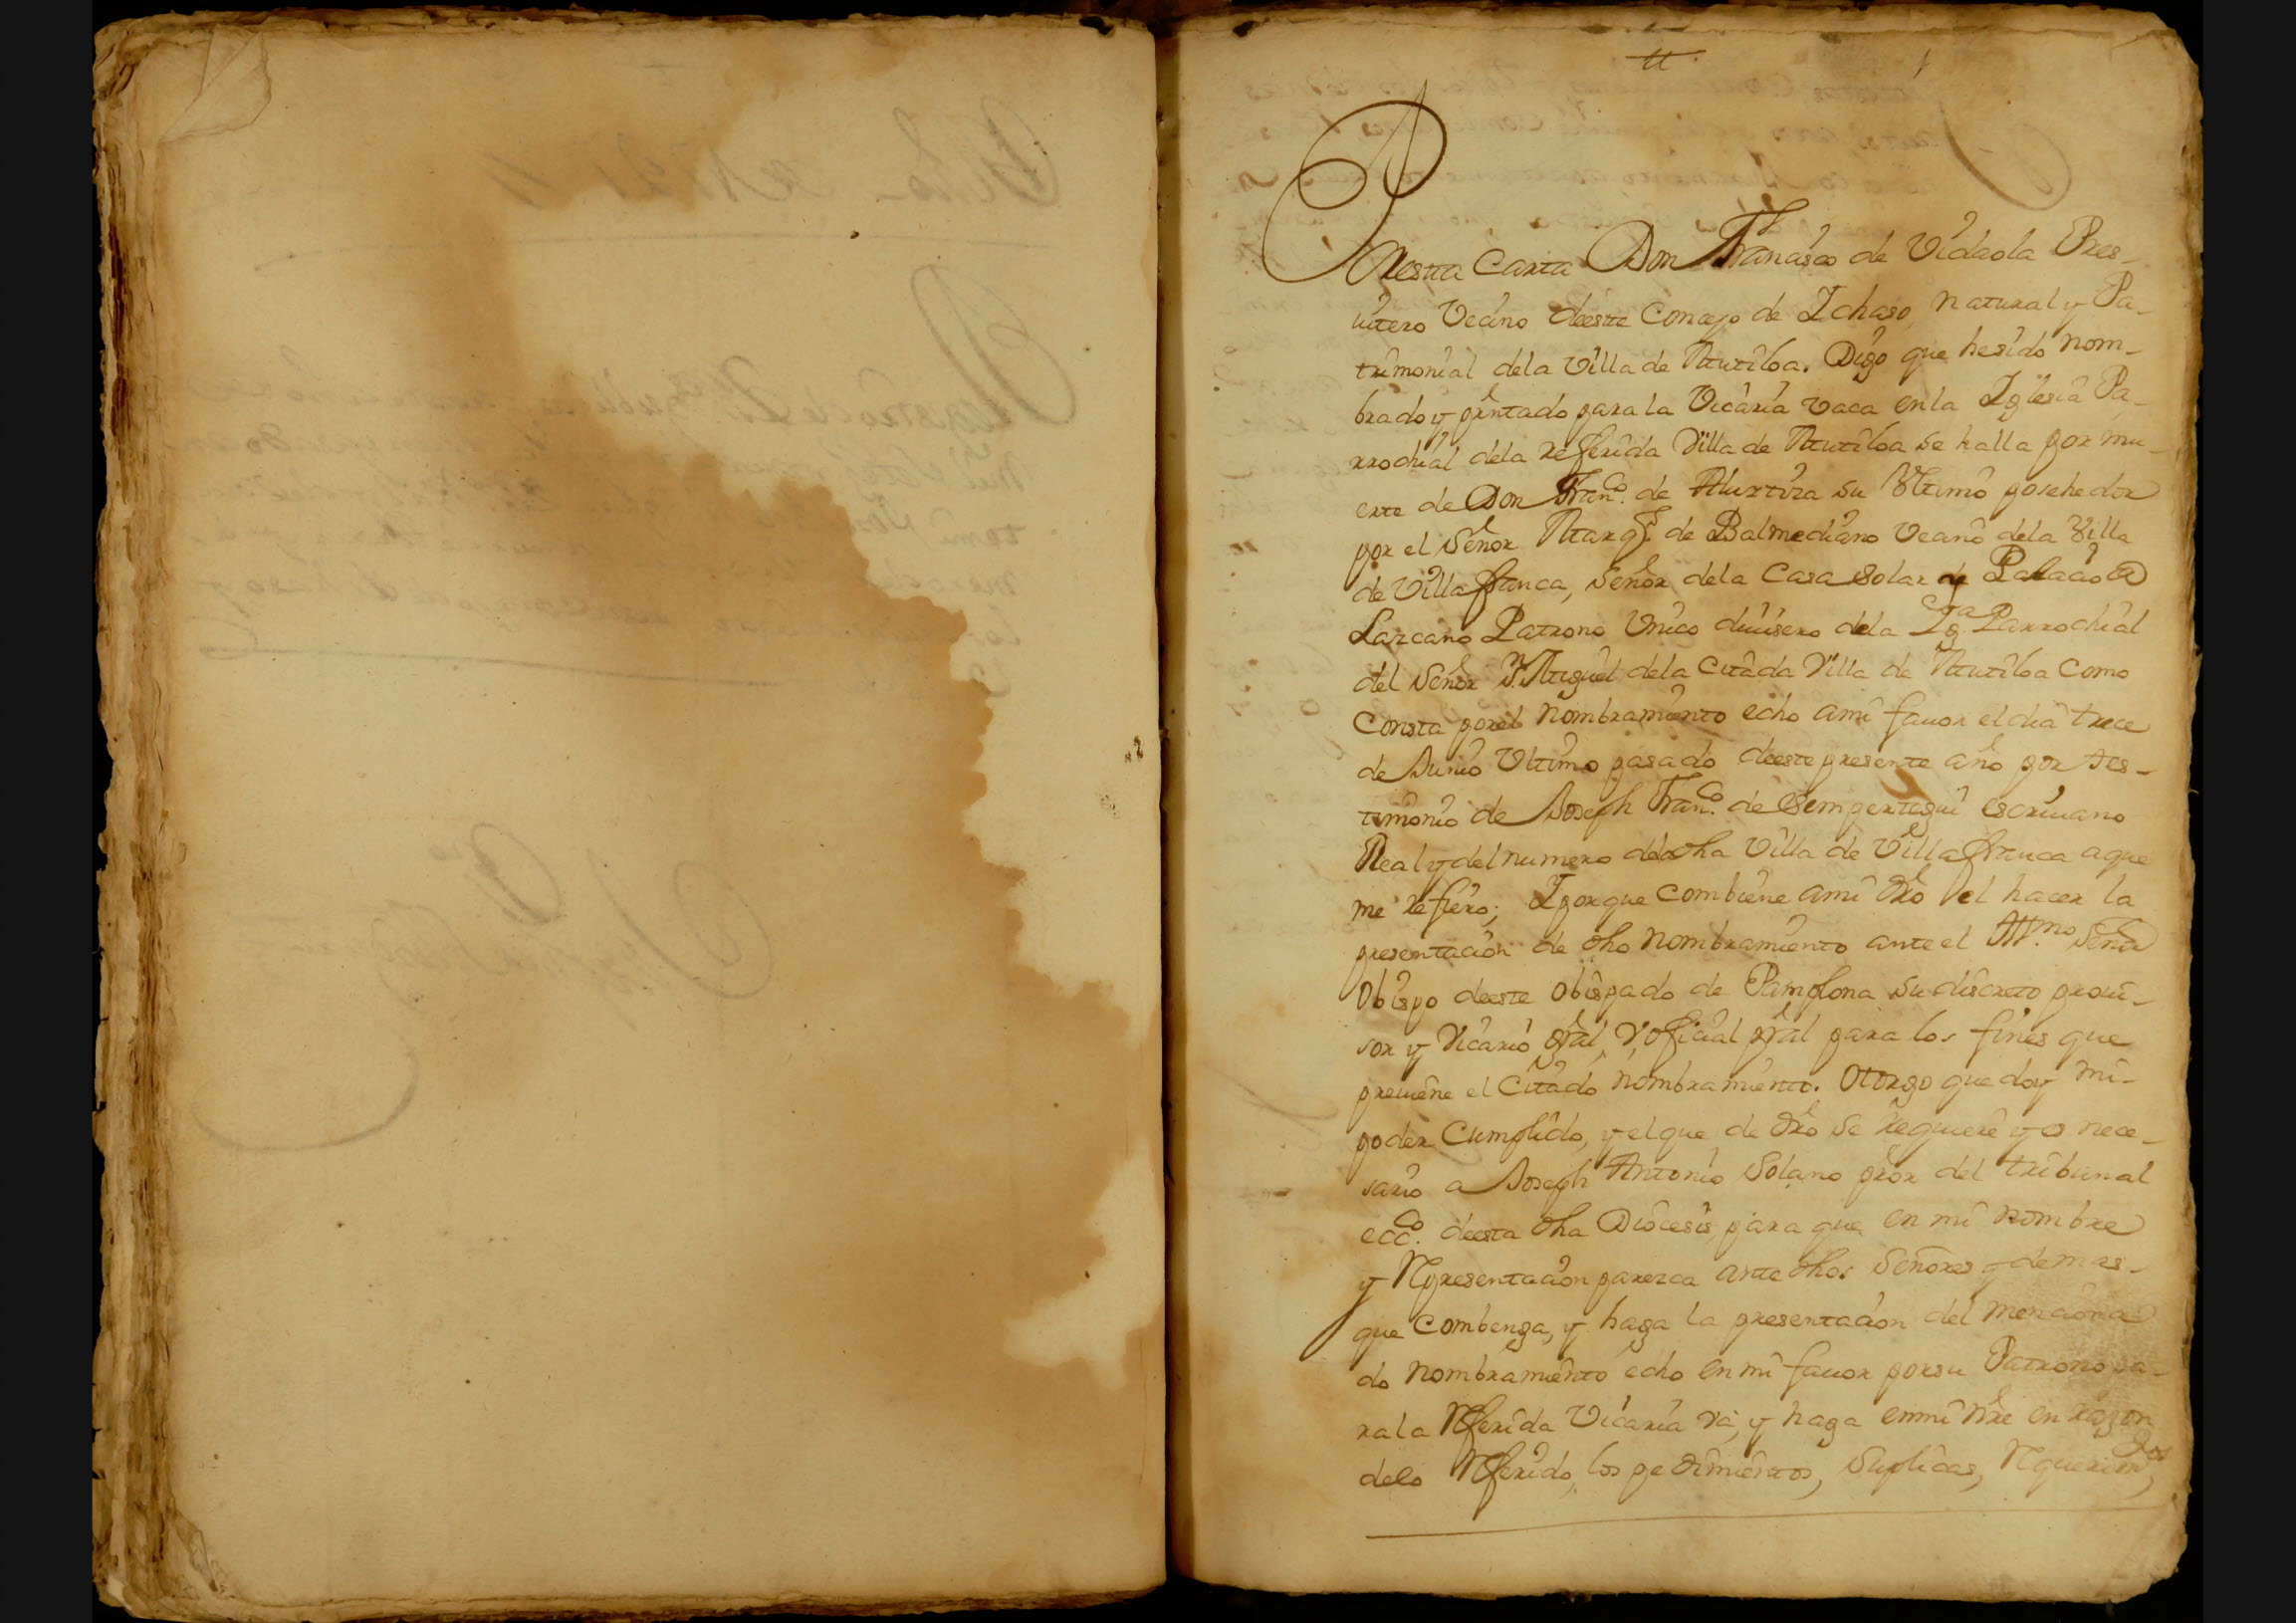 tt
1
En esta Carta Don Francisco de Vidaola Pres-
vitero Vecino deeste Concejo de Ichaso, natural y Pa-
trimonial dela Villa de Mutiloa. Digo que hesido nom-
brado y presentado para la Vicaria vaca en la Iglesia Pa-
rrochial dela referida Villa de Mutiloa se halla por mu-
erte de Don Fran.co de Murtiza su Vltimo posehedor
por el Señor Marq.s de Balmediano Vecino dela Villa
de Villafranca, Señor dela Casa Solar de Palacio @
Lazcano Patrono Vnico diuisero dela Ig.a Parrochial
del Señor S.n Miguel dela Citada Villa de Mutiloa Como
Consta porel nombramiento echo ami fauor el dia trece
de Junio Vltimo pasado deeste presente año por tes-
timonio de Joseph Fran.co de Sempertegui escriuano
Real y del numero dela dha Villa de Villafranca aque
me refiero; Y porque combiene ami dro el hacer la
presentacion de dho nombramiento ante el Ill.mo Señor
Obispo deeste Obispado de Pamplona su discreto proui-
sor y Vicario gral, y oficial pral para los fines que
preuiene el Citado nombramiento. Otorgo que doy mi-
poder Cumplido, y elque de dro se requiere y es nece-
sario a Joseph Antonio Solano pror del tribunal
ecc.co deesta dha Diocesis, para que en mi nombre
y Representacion parezca ante dhos Señores y demas-
que Combenga, y haga la presentacion del menciona-
do nombramiento echo en mi fauor porsu Patrono pa-
rala Referida Vicaria Va, y haga enmi nre en razon
delo Referido, los pedimientos, Suplicas, Requerim.tos,